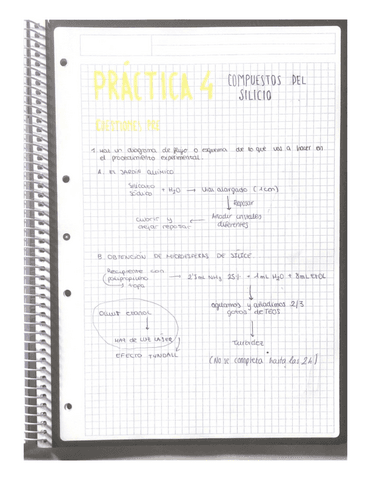 PRÁCTICA 4 COMPUESTOS DEL SILICIO
CUESTIONES PRE
1. Haz un diagrama de flujo o esquema de lo que vas a hacer en
el procedimiento experimental.
A. EL JARDÍN QUÍMICO
Silicato sódico + H2O → Vaso alargado (1 cm)
↓ Reposar
Cubrir y dejar reposar ← Añadir cristales diferentes
B. OBTENCIÓN DE MICROESFERAS DE SÍLICE
Recipiente con
polipropileno
+ tapa
→ 2'5mL NH3 25% + 1mL H2O + 8mL EtOH
↓
Agitamos y añadimos 2/3
gotas de TEOS
↓
Turbidez
(No se completa hasta las 2h)
etanol
↓
HAZ DE LUZ LÁSER
↓
EFECTO TYNDALL